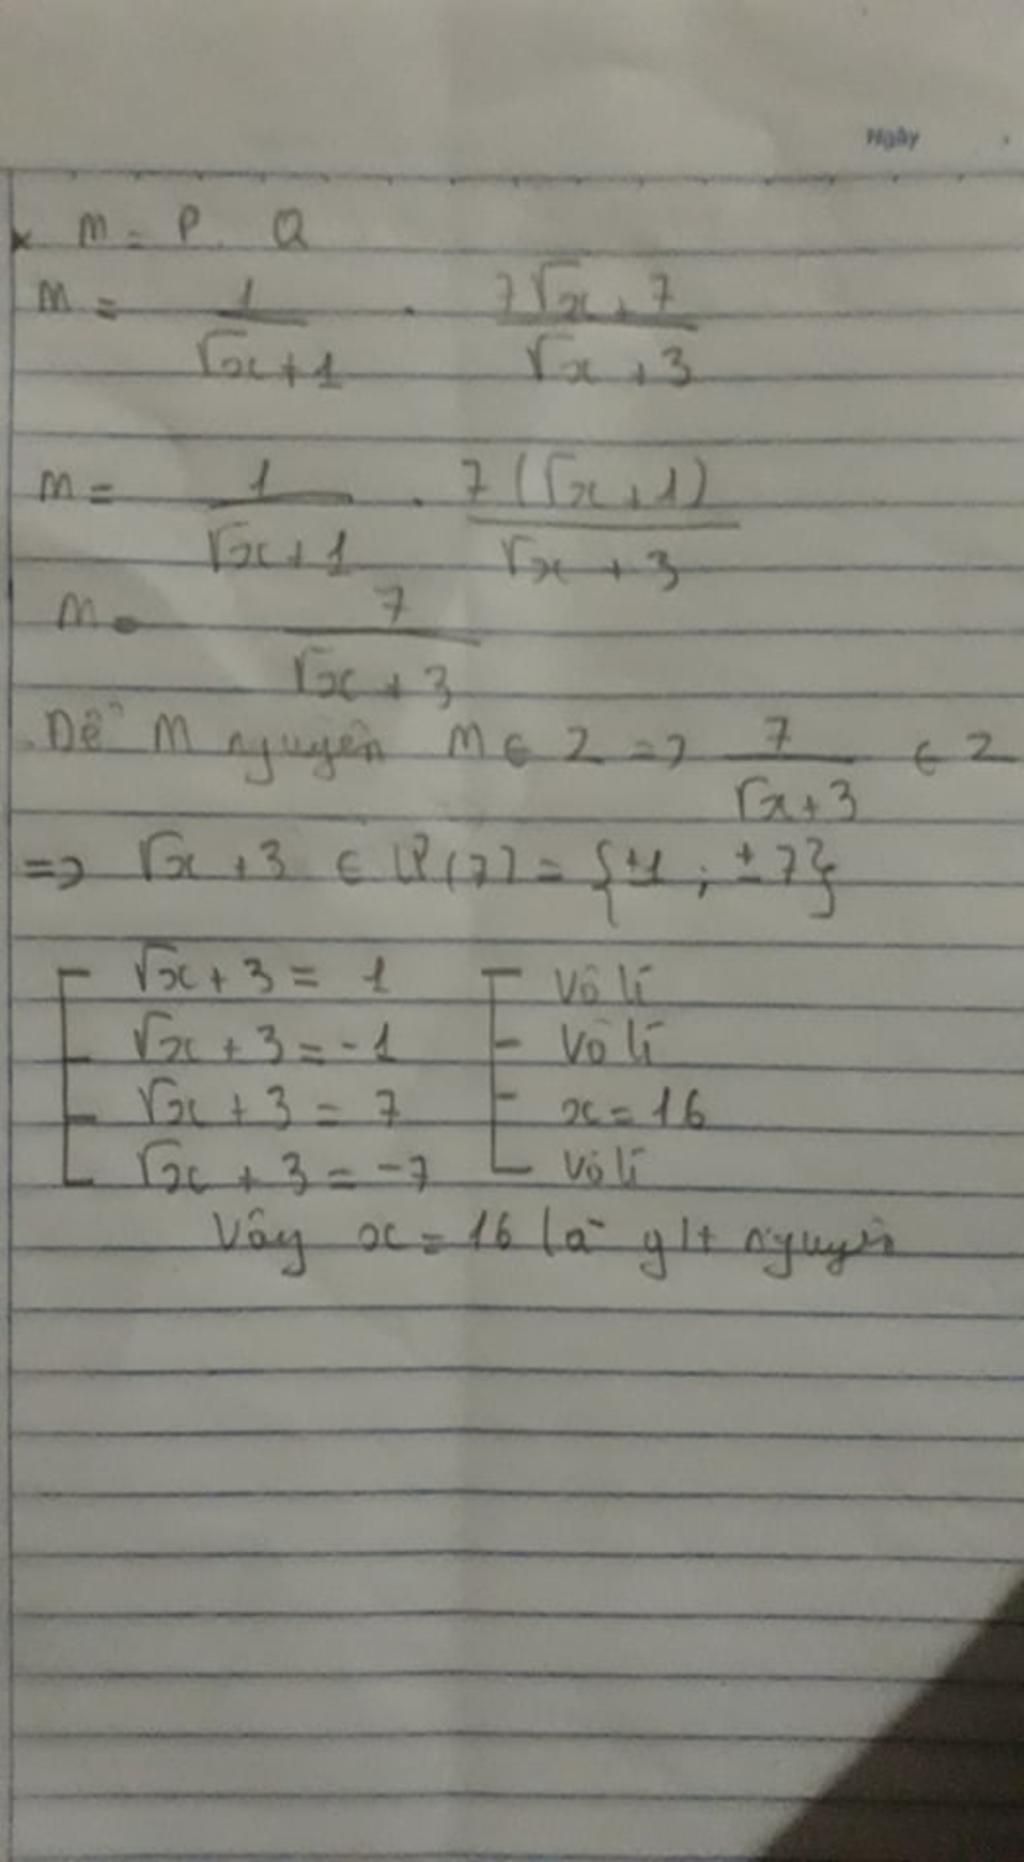 Ngày
* M = P . Q
M = 1/(√x+1) . (7√x+7)/(√x+3)
M = 1/(√x+1) . 7(√x+1)/(√x+3)
M = 7/(√x+3)
Để M nguyên M ∈ Z => 7/(√x+3) ∈ Z
=> √x+3 ∈ Ư(7) = {±1 ; ±7}
[ √x+3 = 1 [ Vô lí
√x+3 = -1 Vô lí
√x+3 = 7 x = 16
√x+3 = -7 Vô lí
Vậy x = 16 là g/t nguyên